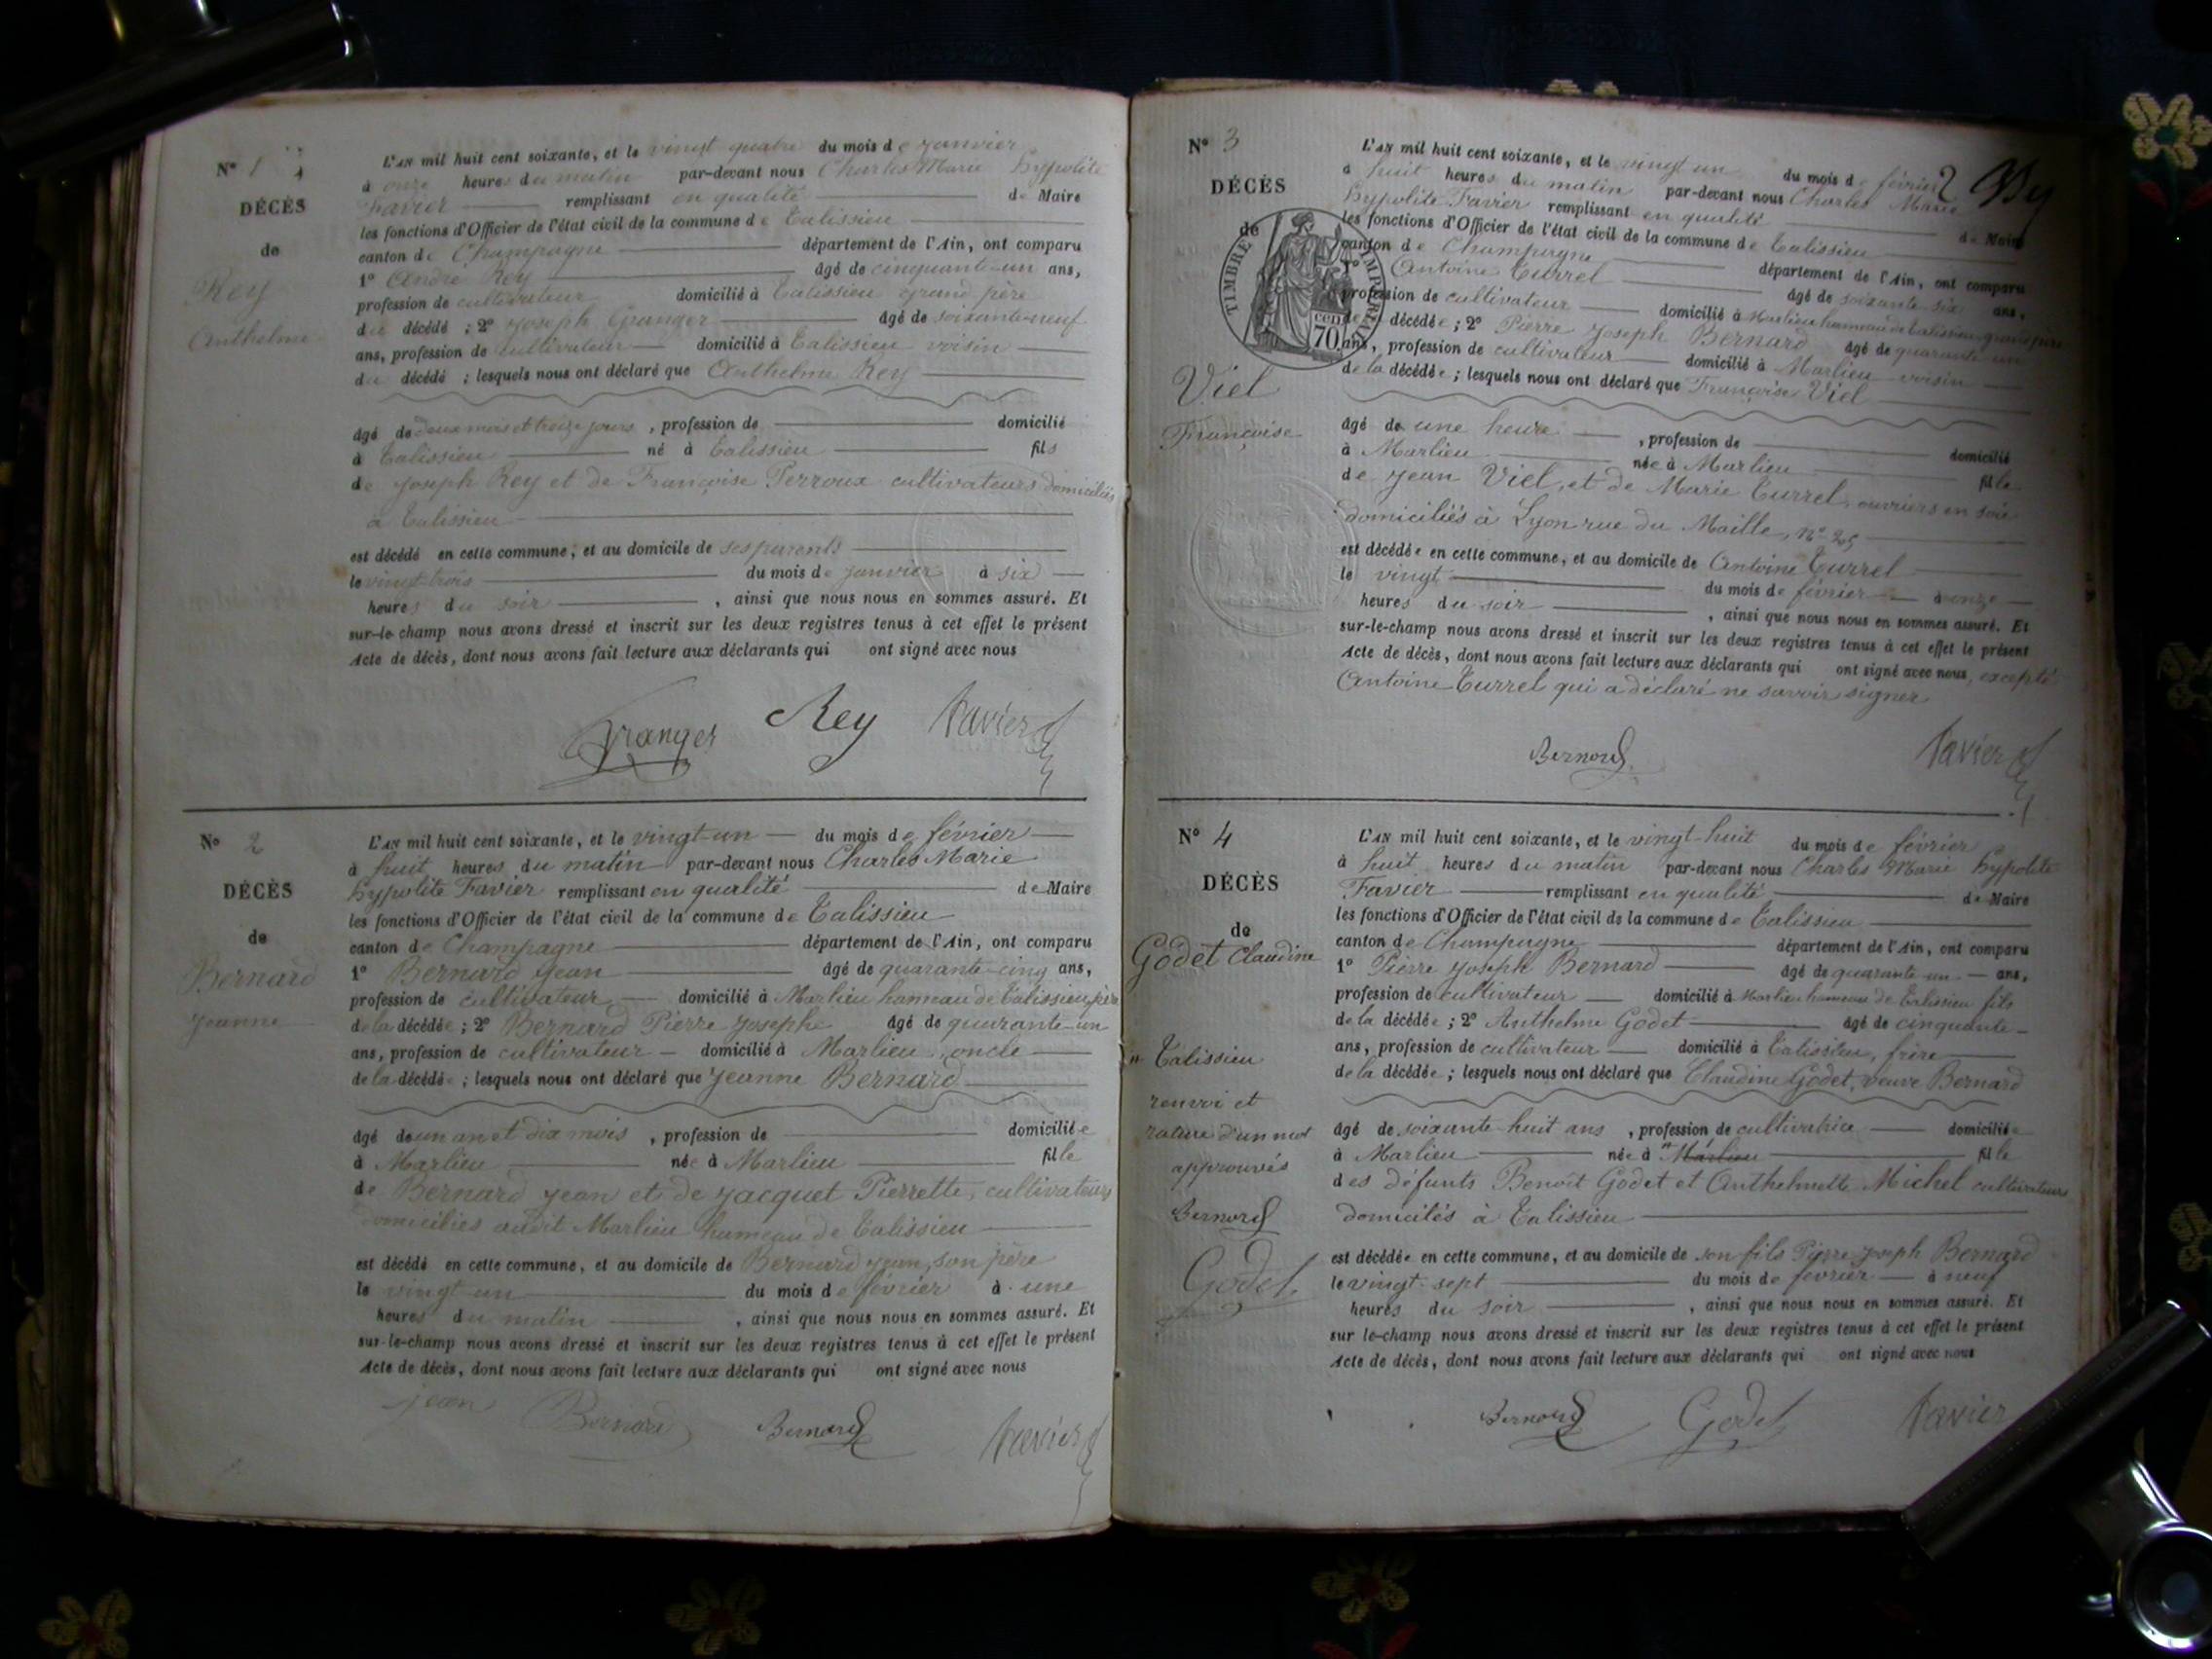 N° 1
DÉCÈS
de
Rey
Anthelme
L'AN mil huit cent soixante, et le vingt quatre du mois de janvier
à onze heures du matin par-devant nous Charles Marie hypolite
Favier remplissant en qualité de Maire
les fonctions d'Officier de l'état civil de la commune de Talissieu
canton de Champagne département de l'Ain, ont comparu
1° André Rey âgé de cinquante-un ans,
profession de cultivateur domicilié à Talissieu grand père
du décédé ; 2° Joseph Granger âgé de soixante-neuf
ans, profession de cultivateur domicilié à Talissieu voisin
du décédé ; lesquels nous ont déclaré que Anthelme Rey
âgé de deux mois et treize jours, profession de domicilié
à Talissieu né à Talissieu fils
de Joseph Rey et de Françoise Perroux cultivateurs domiciliés
à Talissieu
est décédé en cette commune, et au domicile de ses parents
le vingt-trois du mois de janvier à six
heures du soir, ainsi que nous nous en sommes assuré. Et
sur-le-champ nous avons dressé et inscrit sur les deux registres tenus à cet effet le présent
Acte de décès, dont nous avons fait lecture aux déclarants qui ont signé avec nous
Granger Rey Favier
N° 2
DÉCÈS
de
Bernard
Jeanne
L'AN mil huit cent soixante, et le vingt-un du mois de février
à huit heures du matin par-devant nous Charles Marie
hypolite Favier remplissant en qualité de Maire
les fonctions d'Officier de l'état civil de la commune de Talissieu
canton de Champagne département de l'Ain, ont comparu
1° Bernard Jean âgé de quarante-cinq ans,
profession de cultivateur domicilié à Marlieu hameau de Talissieu père
de la décédée ; 2° Bernard Pierre Josephe âgé de quarante-un
ans, profession de cultivateur domicilié à Marlieu, oncle
de la décédée ; lesquels nous ont déclaré que Jeanne Bernard
âgé de un an et dix mois, profession de domiciliée
à Marlieu née à Marlieu fille
de Bernard Jean et de Jacquet Pierrette, cultivateurs
domiciliés audit Marlieu hameau de Talissieu
est décédé en cette commune, et au domicile de Bernard Jean, son père
le vingt-un du mois de février à une
heures du matin, ainsi que nous nous en sommes assuré. Et
sur-le-champ nous avons dressé et inscrit sur les deux registres tenus à cet effet le présent
Acte de décès, dont nous avons fait lecture aux déclarants qui ont signé avec nous
jean Bernard Bernard Favier
2
N° 3
DÉCÈS
de
TIMBRE IMPÉRIAL
70 cent
Viel
Françoise
L'AN mil huit cent soixante, et le vingt un du mois de février
à huit heures du matin par-devant nous Charles Marie
hypolite Favier remplissant en qualité de Maire
les fonctions d'Officier de l'état civil de la commune de Talissieu
canton de Champagne département de l'Ain, ont comparu
1° Antoine Turrel âgé de soixante-six ans,
profession de cultivateur domicilié à Marlieu hameau de Talissieu grand père
décédée ; 2° Pierre Joseph Bernard âgé de quarante un
ans, profession de cultivateur domicilié à Marlieu voisin
de la décédée ; lesquels nous ont déclaré que Françoise Viel
âgé de une heure, profession de domicilié
à Marlieu née à Marlieu fille
de Jean Viel, et de Marie Turrel, ouvriers en soie
domiciliés à Lyon rue du Maille, n° 25
est décédée en cette commune, et au domicile de Antoine Turrel
le vingt du mois de février à onze
heures du soir, ainsi que nous nous en sommes assuré. Et
sur-le-champ nous avons dressé et inscrit sur les deux registres tenus à cet effet le présent
Acte de décès, dont nous avons fait lecture aux déclarants qui ont signé avec nous, excepté
Antoine Turrel qui a déclaré ne savoir signer
Bernard Favier
N° 4
DÉCÈS
de
Godet Claudine
" Talissieu
renvoi et
rature d'un mot
approuvés
Bernard
Godet
L'AN mil huit cent soixante, et le vingt-huit du mois de février
à huit heures du matin par-devant nous Charles Marie hypolite
Favier remplissant en qualité de Maire
les fonctions d'Officier de l'état civil de la commune de Talissieu
canton de Champagne département de l'Ain, ont comparu
1° Pierre Joseph Bernard âgé de quarante-un ans,
profession de cultivateur domicilié à Marlieu hameau de Talissieu fils
de la décédée ; 2° Anthelme Godet âgé de cinquante
ans, profession de cultivateur domicilié à Talissieu, frère
de la décédée ; lesquels nous ont déclaré que Claudine Godet, veuve Bernard
âgé de soixante-huit ans, profession de cultivatrice domiciliée
à Marlieu née à " Marlieu fille
des défunts Benoît Godet et Anthelmette Michel cultivateurs
domiciliés à Talissieu
est décédée en cette commune, et au domicile de son fils Pierre Joseph Bernard
le vingt-sept du mois de février à neuf
heures du soir, ainsi que nous nous en sommes assuré. Et
sur le-champ nous avons dressé et inscrit sur les deux registres tenus à cet effet le présent
Acte de décès, dont nous avons fait lecture aux déclarants qui ont signé avec nous
Bernard Godet Favier